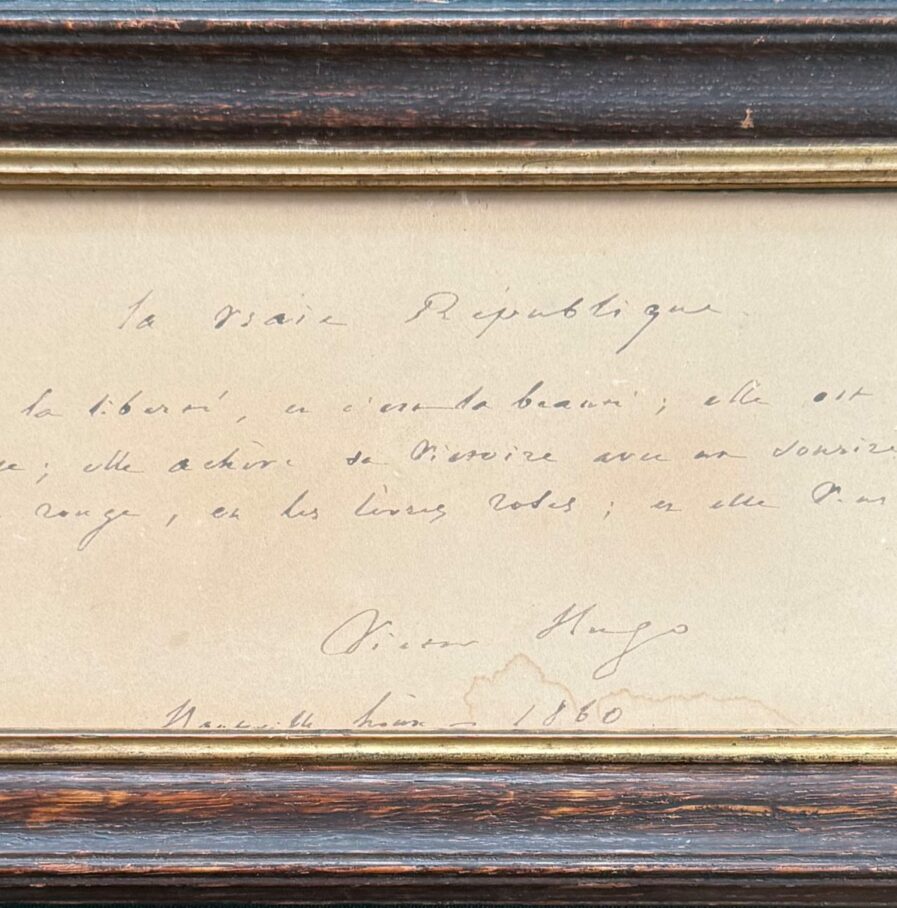 la vraie République
la liberté, et c'est la beauté ; elle est
; elle achève sa victoire avec un sourire
rouge, et les lèvres roses ; et elle
Victor Hugo
Hauteville house – 1860